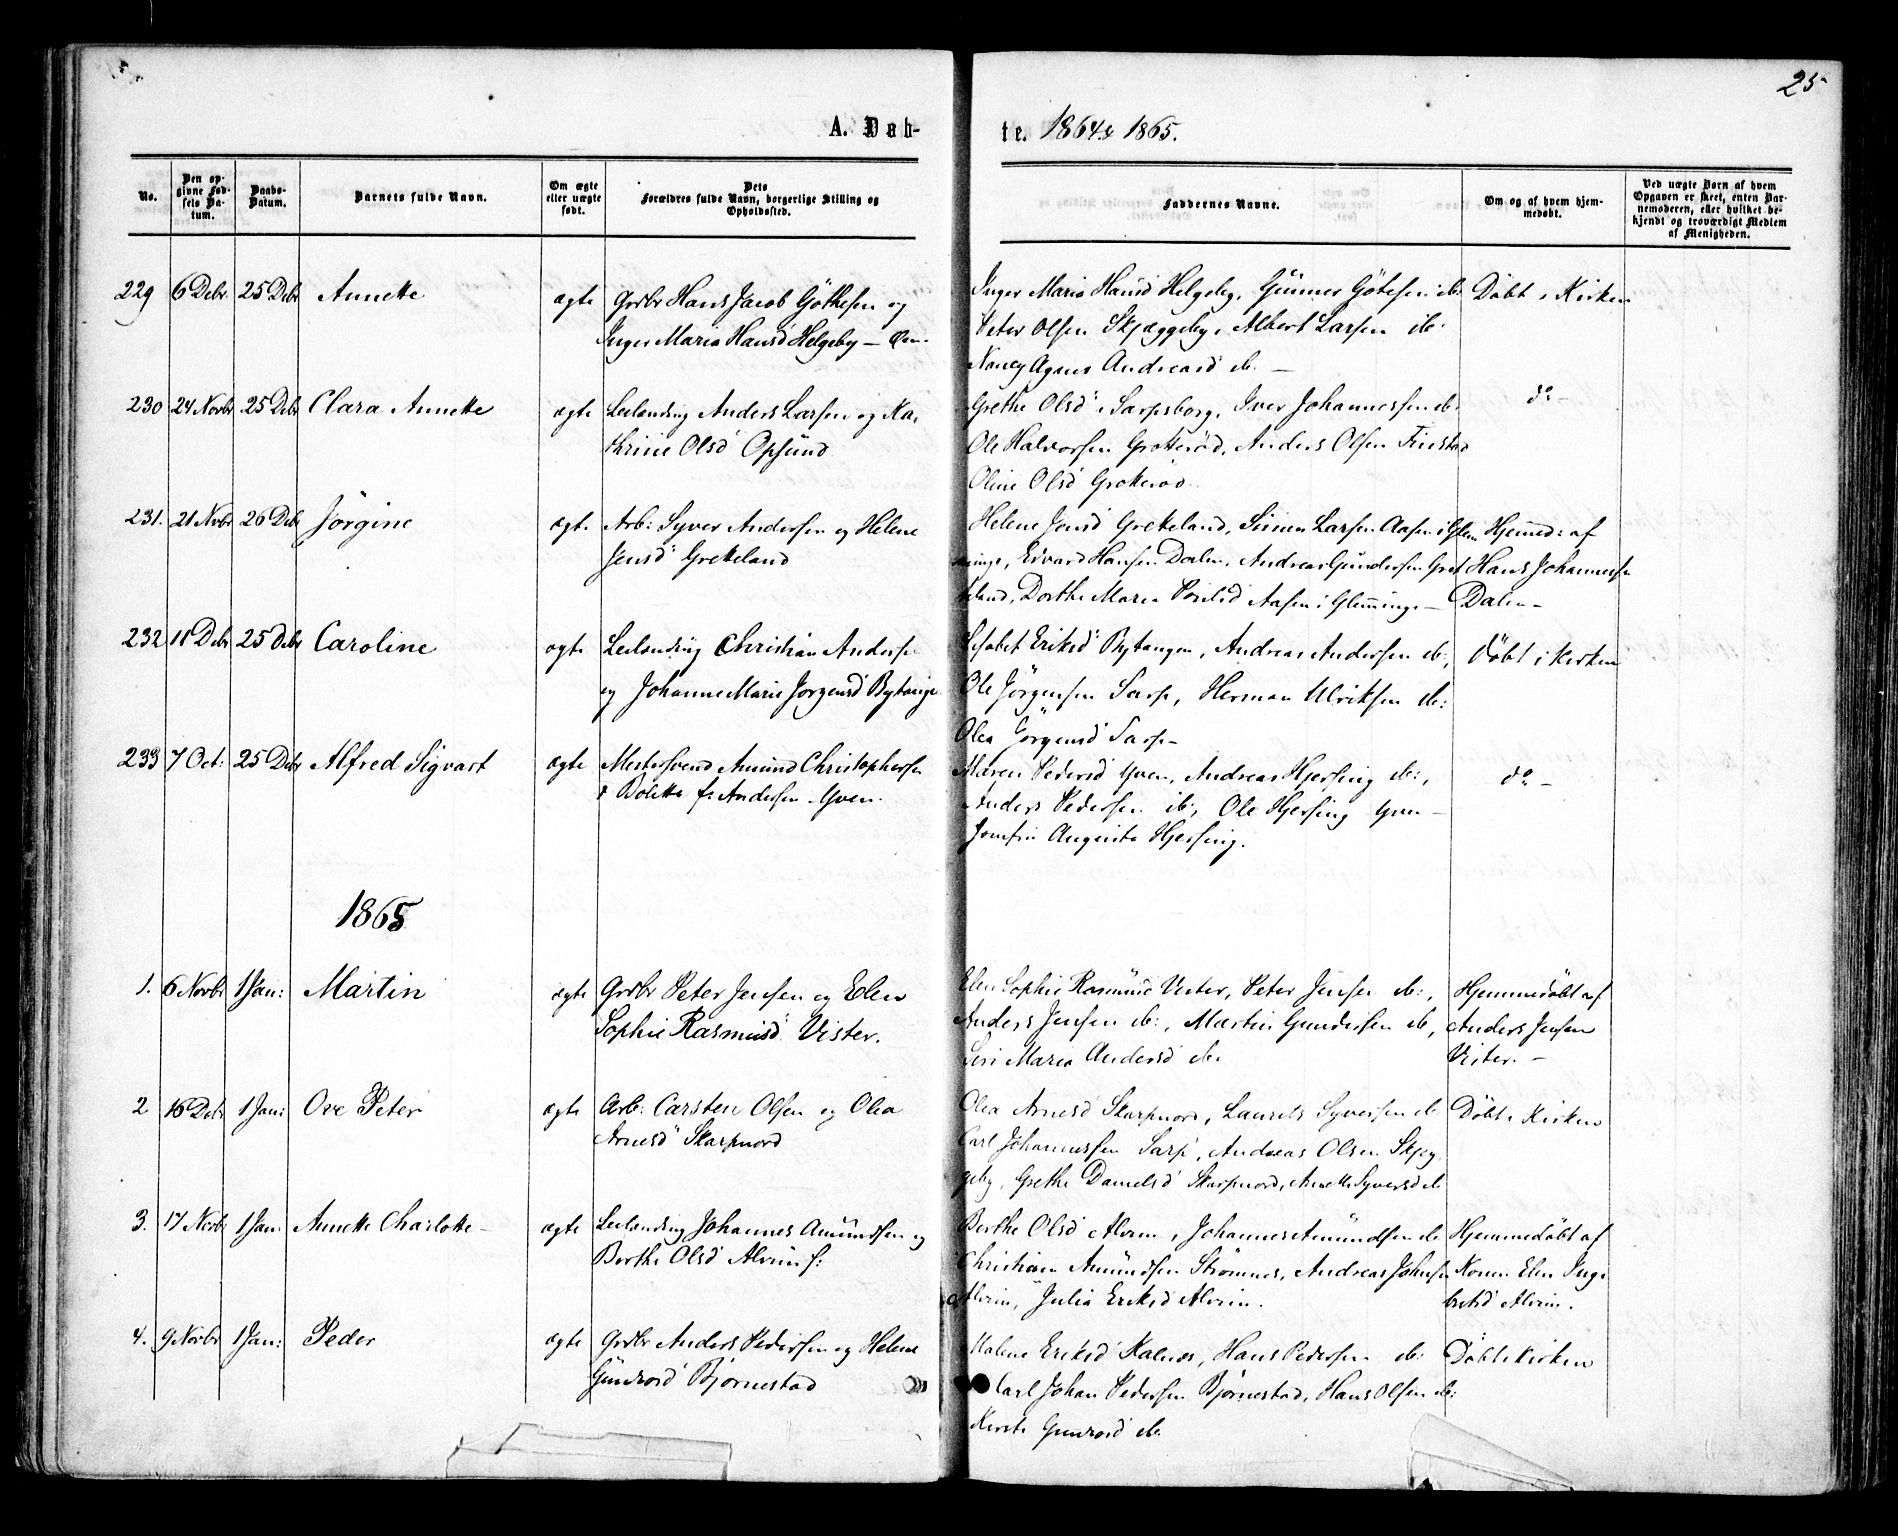 25
A. Døb-
te. 1864 & 1865.
No.
Den op-
givne Fød-
sels Da-
tum.
Daabs-
Datum.
Barnets fulde Navn.
Om ægte
eller uægte
født.
Dets
Forældres fulde Navn, borgerlige Stilling og
Opholdssted.
Faddernes Navne.
Om og af hvem hjem-
medøbt.
Ved uægte Børn af hvem
Opgaven er skeet, enten Bar-
nemoderen, eller hvilket be-
kjendt og troværdigt Medlem
af Menigheden.
229 6 Debr 25 Debr Annette ægte Grdbr Hans Jacob Göthesen og
Inger Maria Hansd Helgeby —
Inger Maria Hansd Helgeby, Gunner Götesen ib:
Peter Olsen Skjæggeby, Albert Larsen ib:
Nancy Agnes Andreasd ib. —
Döbt i Kirken
230 24 Novbr 25 Debr Clara Annette ægte Leilending Anders Larsen og Ka-
thrine Olsd Opsund
Grethe Olsd i Sarpsborg, Iver Johannessen ib:
Ole Halvorsen Grotterød, Anders Olsen Finstad
Oline Olsd Grotterød
do —
231. 21 Novbr 26 Debr Jörgine ægte Arb: Syver Andersen og Helene
Jensd Grekeland
Helene Jensd Grekeland, Simen Larsen Aasen i Glem
minge, Edvard Hansen Dalen, Andreas Gundersen Gre
keland, Dorthe Maria Aasen i Glemminge —
Hjemmed: af
Hans Johannessen
Dalen —
232 11 Debr 25 Debr Caroline ægte Leilending Christian Andersen
og Johanne Marie Jorgensd Bytange
Lisabet Eriksd Bytangen, Andreas Andersen ib:,
Ole Jörgensen Sarp, Herman Ulriksen ib:
Olea Jörgensd Sarp —
Döbt i Kirken
233 7 Oct: 25 Debr Alfred Sigvart ægte Mestersvend Amund Christophersen
& Bolette f. Andersen Yven.
Maren Pedersd Yven, Andreas Hjersing ib:,
Anders Pedersen ib:, Ole Hjersing Yven —
Josefin Augusta Hjersing.
do —
1865
1. 6 Novbr 1 Jan: Martin ægte Grdbr Peter Jensen og Elen
Sophie Rasmusd Vister.
Elen Sophie Rasmusd Vister, Peter Jensen ib:,
Anders Jensen ib:, Martin Gundersen ib,
Siri Maria Andersd ib.
Hjemmedöbt af
Anders Jensen
Vister. —
2 16 Debr 1 Jan: Ove Peter ægte Arb: Carsten Olsen og Olea
Arnesd Skarpnord
Olea Arnesd Skarpnord, Laurits Syversen ib
Carl Johannessen Sarp, Andreas Olsen Skjeg
geby, Grethe Danielsd Skarpnord, Annette Syversd ib
Döbt i Kirken
3. 17 Novbr 1 Jan Annette Charlotte — ægte Leilending Johannes Amundsen og
Berthe Olsd Alvim
Berthe Olsd Alvim, Johannes Amundsen ib
Christian Amundsen Strömnes, Andreas Johnsen
Alvim, Julia Eriksd Alvim.
Hjemmedöbt af
Konen Elen Inge
bretsd Alvim.
4. 9 Novbr 1 Jan: Peder ægte Grdbr Anders Pedersen og Helene
Gundersd Bjornestad
Eriksd Kalnes, Hans Pedersen ib:
Carl Johan Pedersen Bjornestad, Hans Olsen ib:
Gundersd ib.
Döbt i Kirken